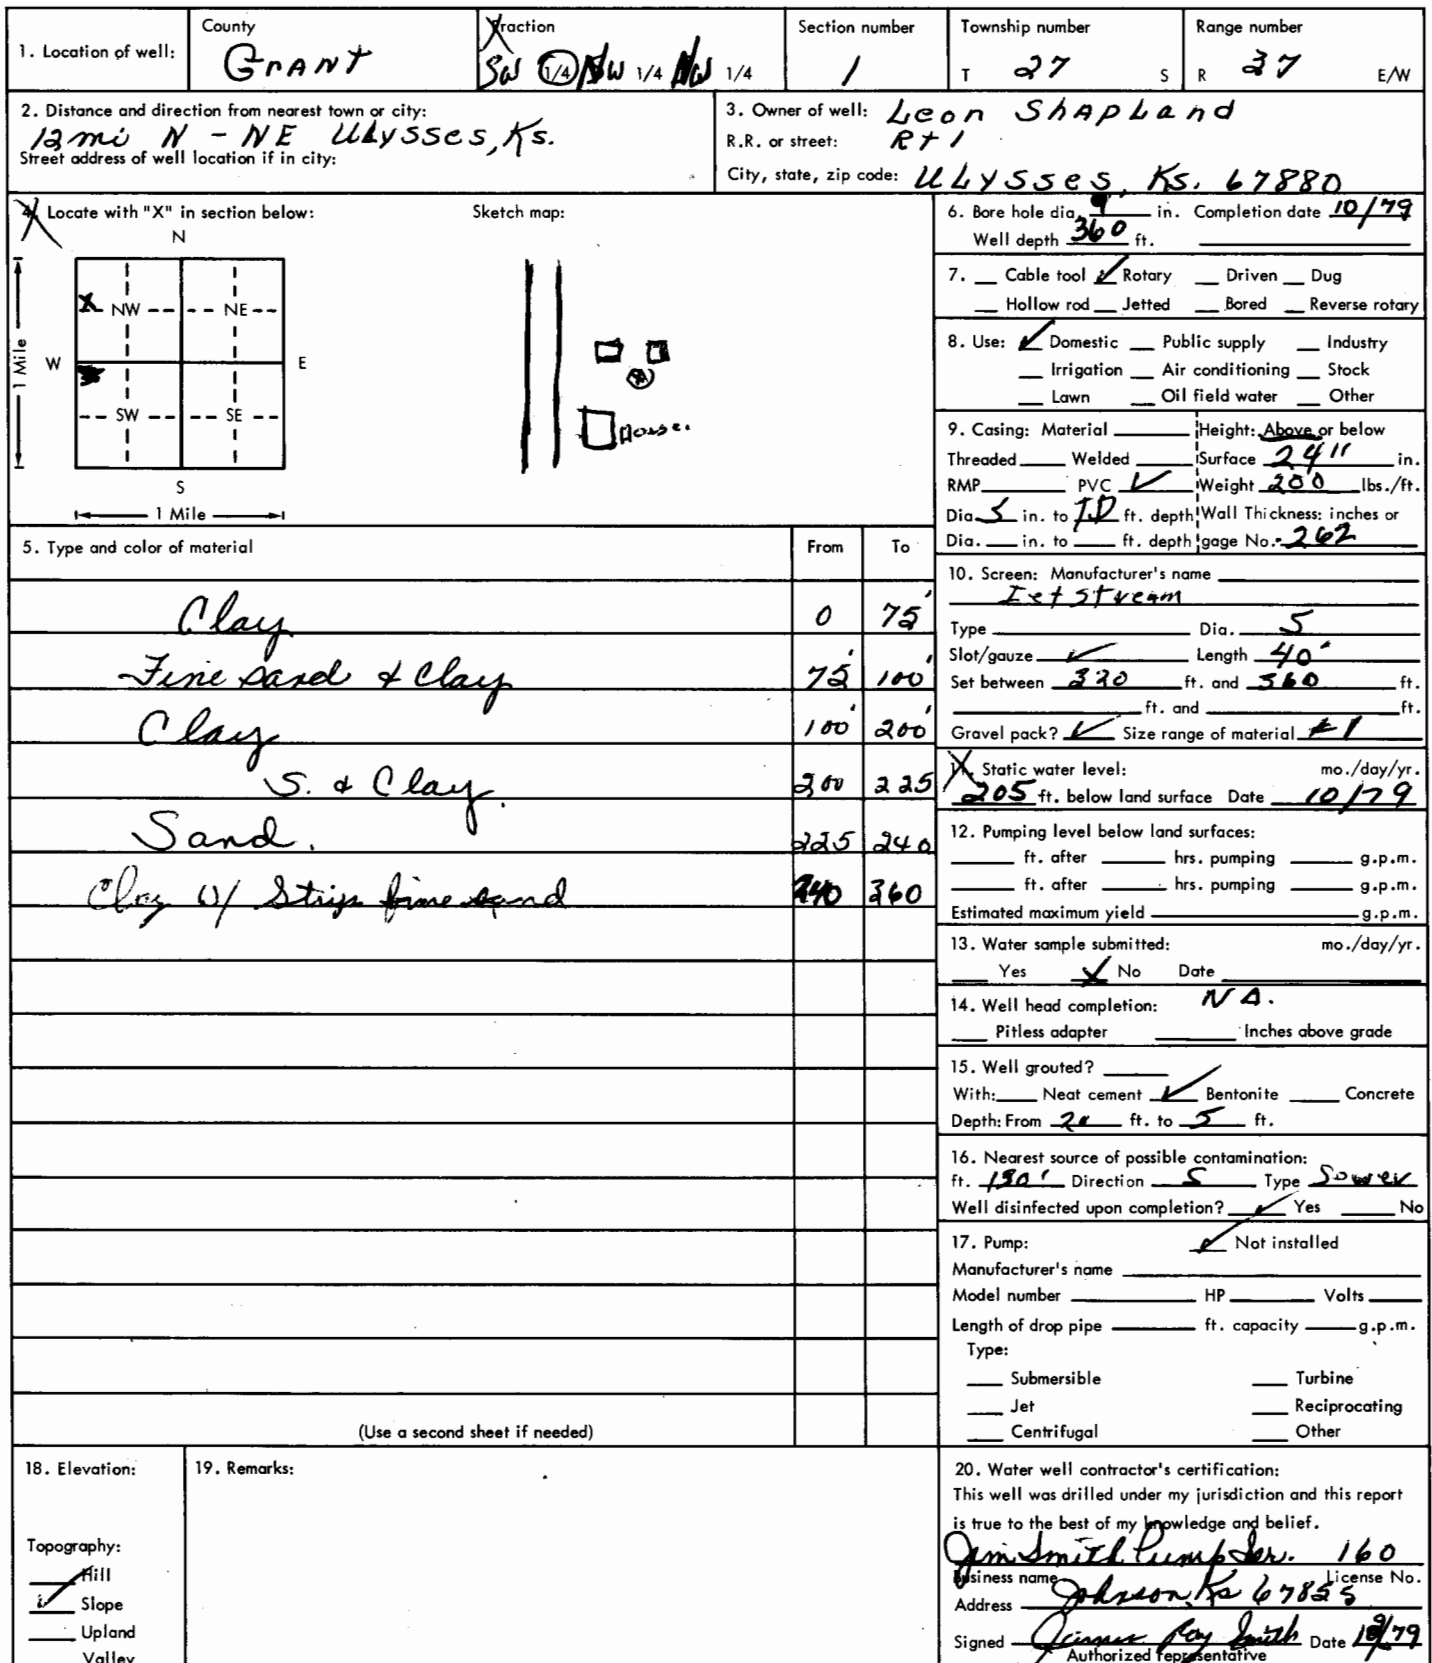 1. Location of well:
County
Grant
Fraction
SW 1/4 NW 1/4 NW 1/4
Section number
1
Township number
T 27 S
Range number
R 37 E/W
2. Distance and direction from nearest town or city:
12 mi N - NE Ulysses, Ks.
Street address of well location if in city:
3. Owner of well: Leon Shapland
R.R. or street: Rt 1
City, state, zip code: Ulysses, Ks. 67880
4. Locate with "X" in section below:
Sketch map:
N
X NW NE
W E
1 Mile
SW SE
S
1 Mile
House.
5. Type and color of material From To
Clay 0 75'
Fine sand & Clay 75' 100'
Clay 100' 200'
S. & Clay. 200 225
Sand. 225 240
Clay w/ Strips fine sand 240 360
(Use a second sheet if needed)
6. Bore hole dia. 9 in. Completion date 10/79
Well depth 360 ft.
7. Cable tool ✓ Rotary Driven Dug
Hollow rod Jetted Bored Reverse rotary
8. Use: ✓ Domestic Public supply Industry
Irrigation Air conditioning Stock
Lawn Oil field water Other
9. Casing: Material Height: Above or below
Threaded Welded Surface 24" in.
RMP PVC ✓ Weight 200 lbs./ft.
Dia. 5 in. to TD ft. depth Wall Thickness: inches or
Dia. in. to ft. depth gage No. .262
10. Screen: Manufacturer's name
Jet Stream
Type Dia. 5
Slot/gauze ✓ Length 40'
Set between 320 ft. and 360 ft.
ft. and ft.
Gravel pack? ✓ Size range of material #1
11. Static water level: mo./day/yr.
205 ft. below land surface Date 10/79
12. Pumping level below land surfaces:
ft. after hrs. pumping g.p.m.
ft. after hrs. pumping g.p.m.
Estimated maximum yield g.p.m.
13. Water sample submitted: mo./day/yr.
Yes X No Date
14. Well head completion: NA.
Pitless adapter Inches above grade
15. Well grouted? ✓
With: Neat cement ✓ Bentonite Concrete
Depth: From ft. to 5 ft.
16. Nearest source of possible contamination:
ft. 150' Direction S Type Sewer
Well disinfected upon completion? ✓ Yes No
17. Pump: ✓ Not installed
Manufacturer's name
Model number HP Volts
Length of drop pipe ft. capacity g.p.m.
Type:
Submersible Turbine
Jet Reciprocating
Centrifugal Other
18. Elevation:
Topography:
Hill
✓ Slope
Upland
Valley
19. Remarks:
20. Water well contractor's certification:
This well was drilled under my jurisdiction and this report
is true to the best of my knowledge and belief.
Jim Smith Pump Ser. 160
Business name License No.
Address Johnson, Ks 67855
Signed James Ray Smith Date 10/79
Authorized representative